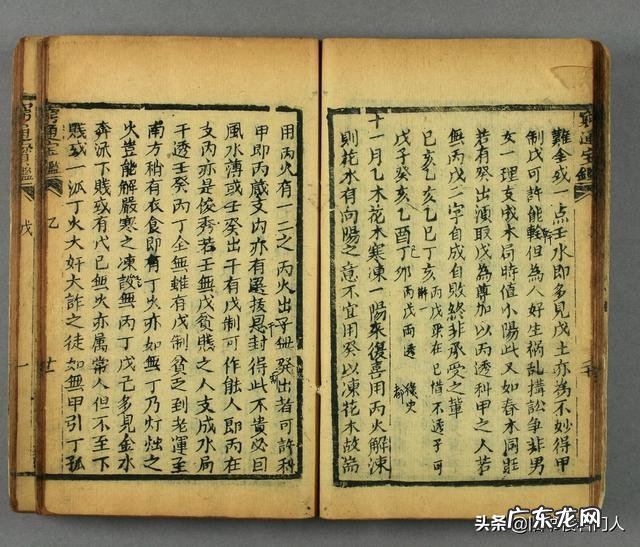 難金或一点壬水即多見戊土亦為不妙得甲
制戊可許能幹但為人好生祸乱搆訟争非男
女一理支成木局時值小陽此又如春木同旺
若有癸出湏取戊為尊加以丙透科甲之人若
無丙戊二字自成自敗終非承受之輩
己亥乙亥乙巳丁亥 丙戊
戊子癸亥乙酉丁卯 丙戊两透
十一月乙木花木寒凍一陽來復喜用丙火解凍
則花木有向陽之意不宜用癸以凍花木故耑
窮通宝鑑
用丙火有一二之丙火出干無癸出者可許科
甲即丙蔵支内亦有選拔恩封得此不貴必因
風水薄或壬癸出干有戊制可作能人即丙在
支内亦是俊秀若壬無戊貧賎之人支成水局
干透壬癸丙丁全無雖有戊制貧乏到老運至
南方稍有衣食即有丁火亦如無丁乃灯烛之
火豈能解嚴寒之凍設無丙丁戊己多見金水
奔流下賎或有戊己無火亦属常人但不至下
賎或一派丁火大奸大詐之徒如無甲引丁孤
窮通宝鑑
乙
廿一
窮通寶鑑
戊
一
头条
广东龙网